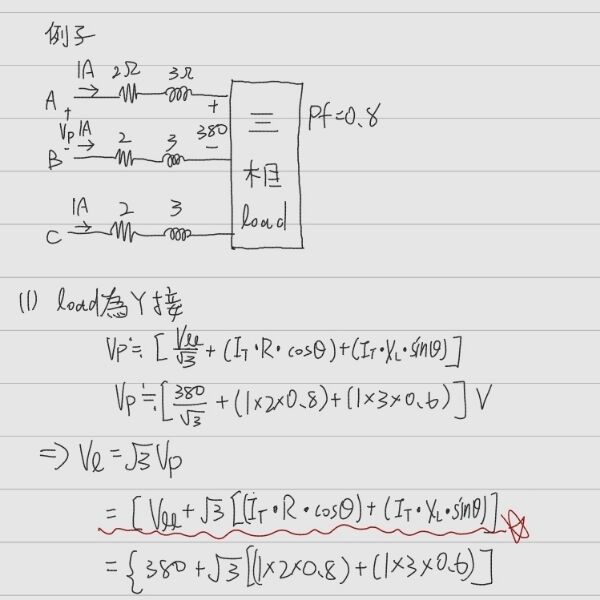 例子
1A 2Ω 3Ω
A
+ +
Vp 1A 2 3 380 三 pf=0.8
- -
B
相
1A 2 3 load
C
(1) load為Y接
Vp≒[Vll/√3+(IT·R·cosθ)+(IT·XL·sinθ)]
Vp≒[380/√3+(1×2×0.8)+(1×3×0.6)]V
=> Vl=√3Vp
=[Vll+√3[(IT·R·cosθ)+(IT·XL·sinθ)]
={380+√3[(1×2×0.8)+(1×3×0.6)]